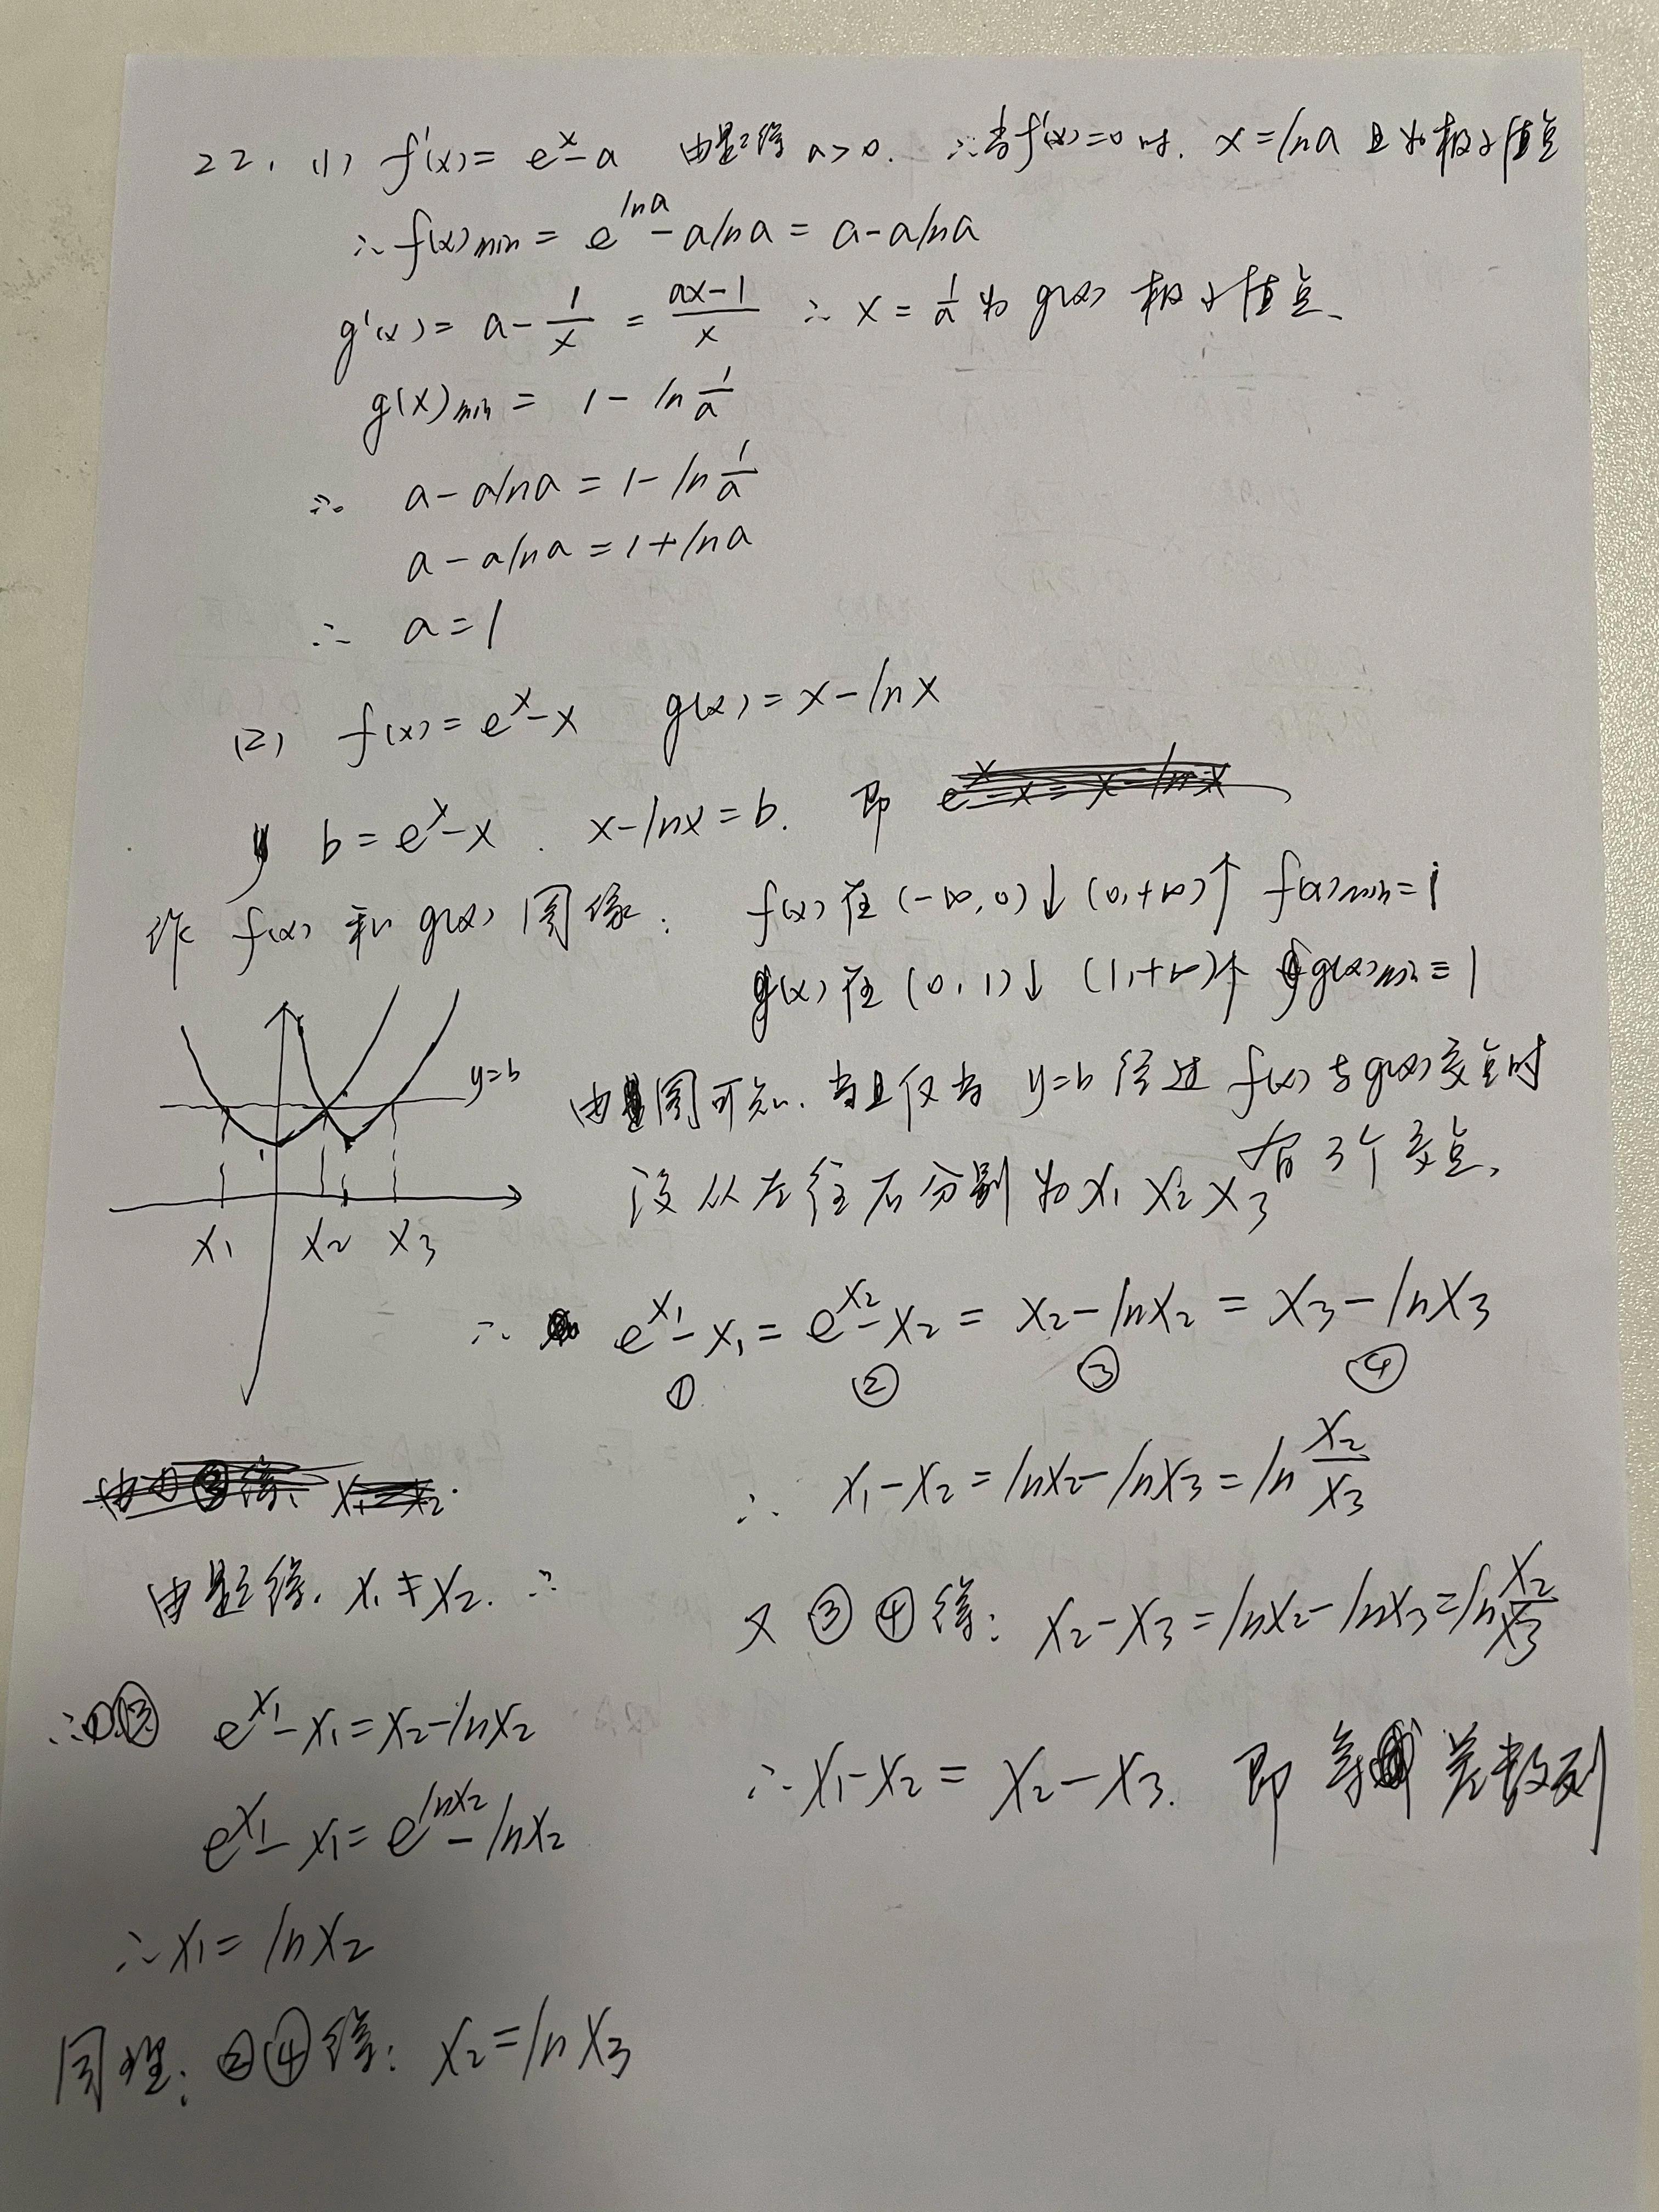 22. (1) f'(x) = e^x - a 由题得 a>0. ∴当f'(x)=0时. x=lna 且为极小值点
∴ f(x)min = e^{lna} - alna = a - alna
g'(x) = a - 1/x = (ax-1)/x ∴ x = 1/a 为 g(x) 极小值点.
g(x)min = 1 - ln 1/a
∴ a - alna = 1 - ln 1/a
a - alna = 1 + lna
∴ a = 1
(2) f(x) = e^x - x g(x) = x - lnx
b = e^x - x . x - lnx = b. 即
作 f(x) 和 g(x) 图像: f(x) 在 (-∞,0)↓ (0,+∞)↑ f(x)min = 1
g(x) 在 (0,1)↓ (1,+∞)↑ g(x)min = 1
y=b
由图可知. 当且仅当 y=b 经过 f(x) 与 g(x) 交点时
有 3个 交点.
设从左往右分别为 x₁ x₂ x₃
x₁ x₂ x₃
∴ e^{x₁} - x₁ = e^{x₂} - x₂ = x₂ - lnx₂ = x₃ - lnx₃
① ② ③ ④
由题得. x₁ ≠ x₂. ∴
∴①③ e^{x₁} - x₁ = x₂ - lnx₂
e^{x₁} - x₁ = e^{lnx₂} - lnx₂
∴ x₁ = lnx₂
同理: ②④得: x₂ = lnx₃
∴ x₁ - x₂ = lnx₂ - lnx₃ = ln x₂/x₃
又 ③ ④ 得: x₂ - x₃ = lnx₂ - lnx₃ = ln x₂/x₃
∴ x₁ - x₂ = x₂ - x₃. 即 等差数列